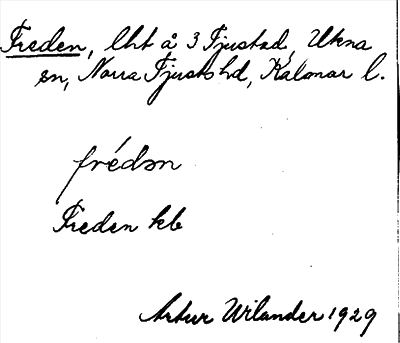 Freden, lht å 3 Tjustad, Ukna
sn, Norra Tjusts hd, Kalmar l.
frédən
Freden kb
Artur Wilander 1929